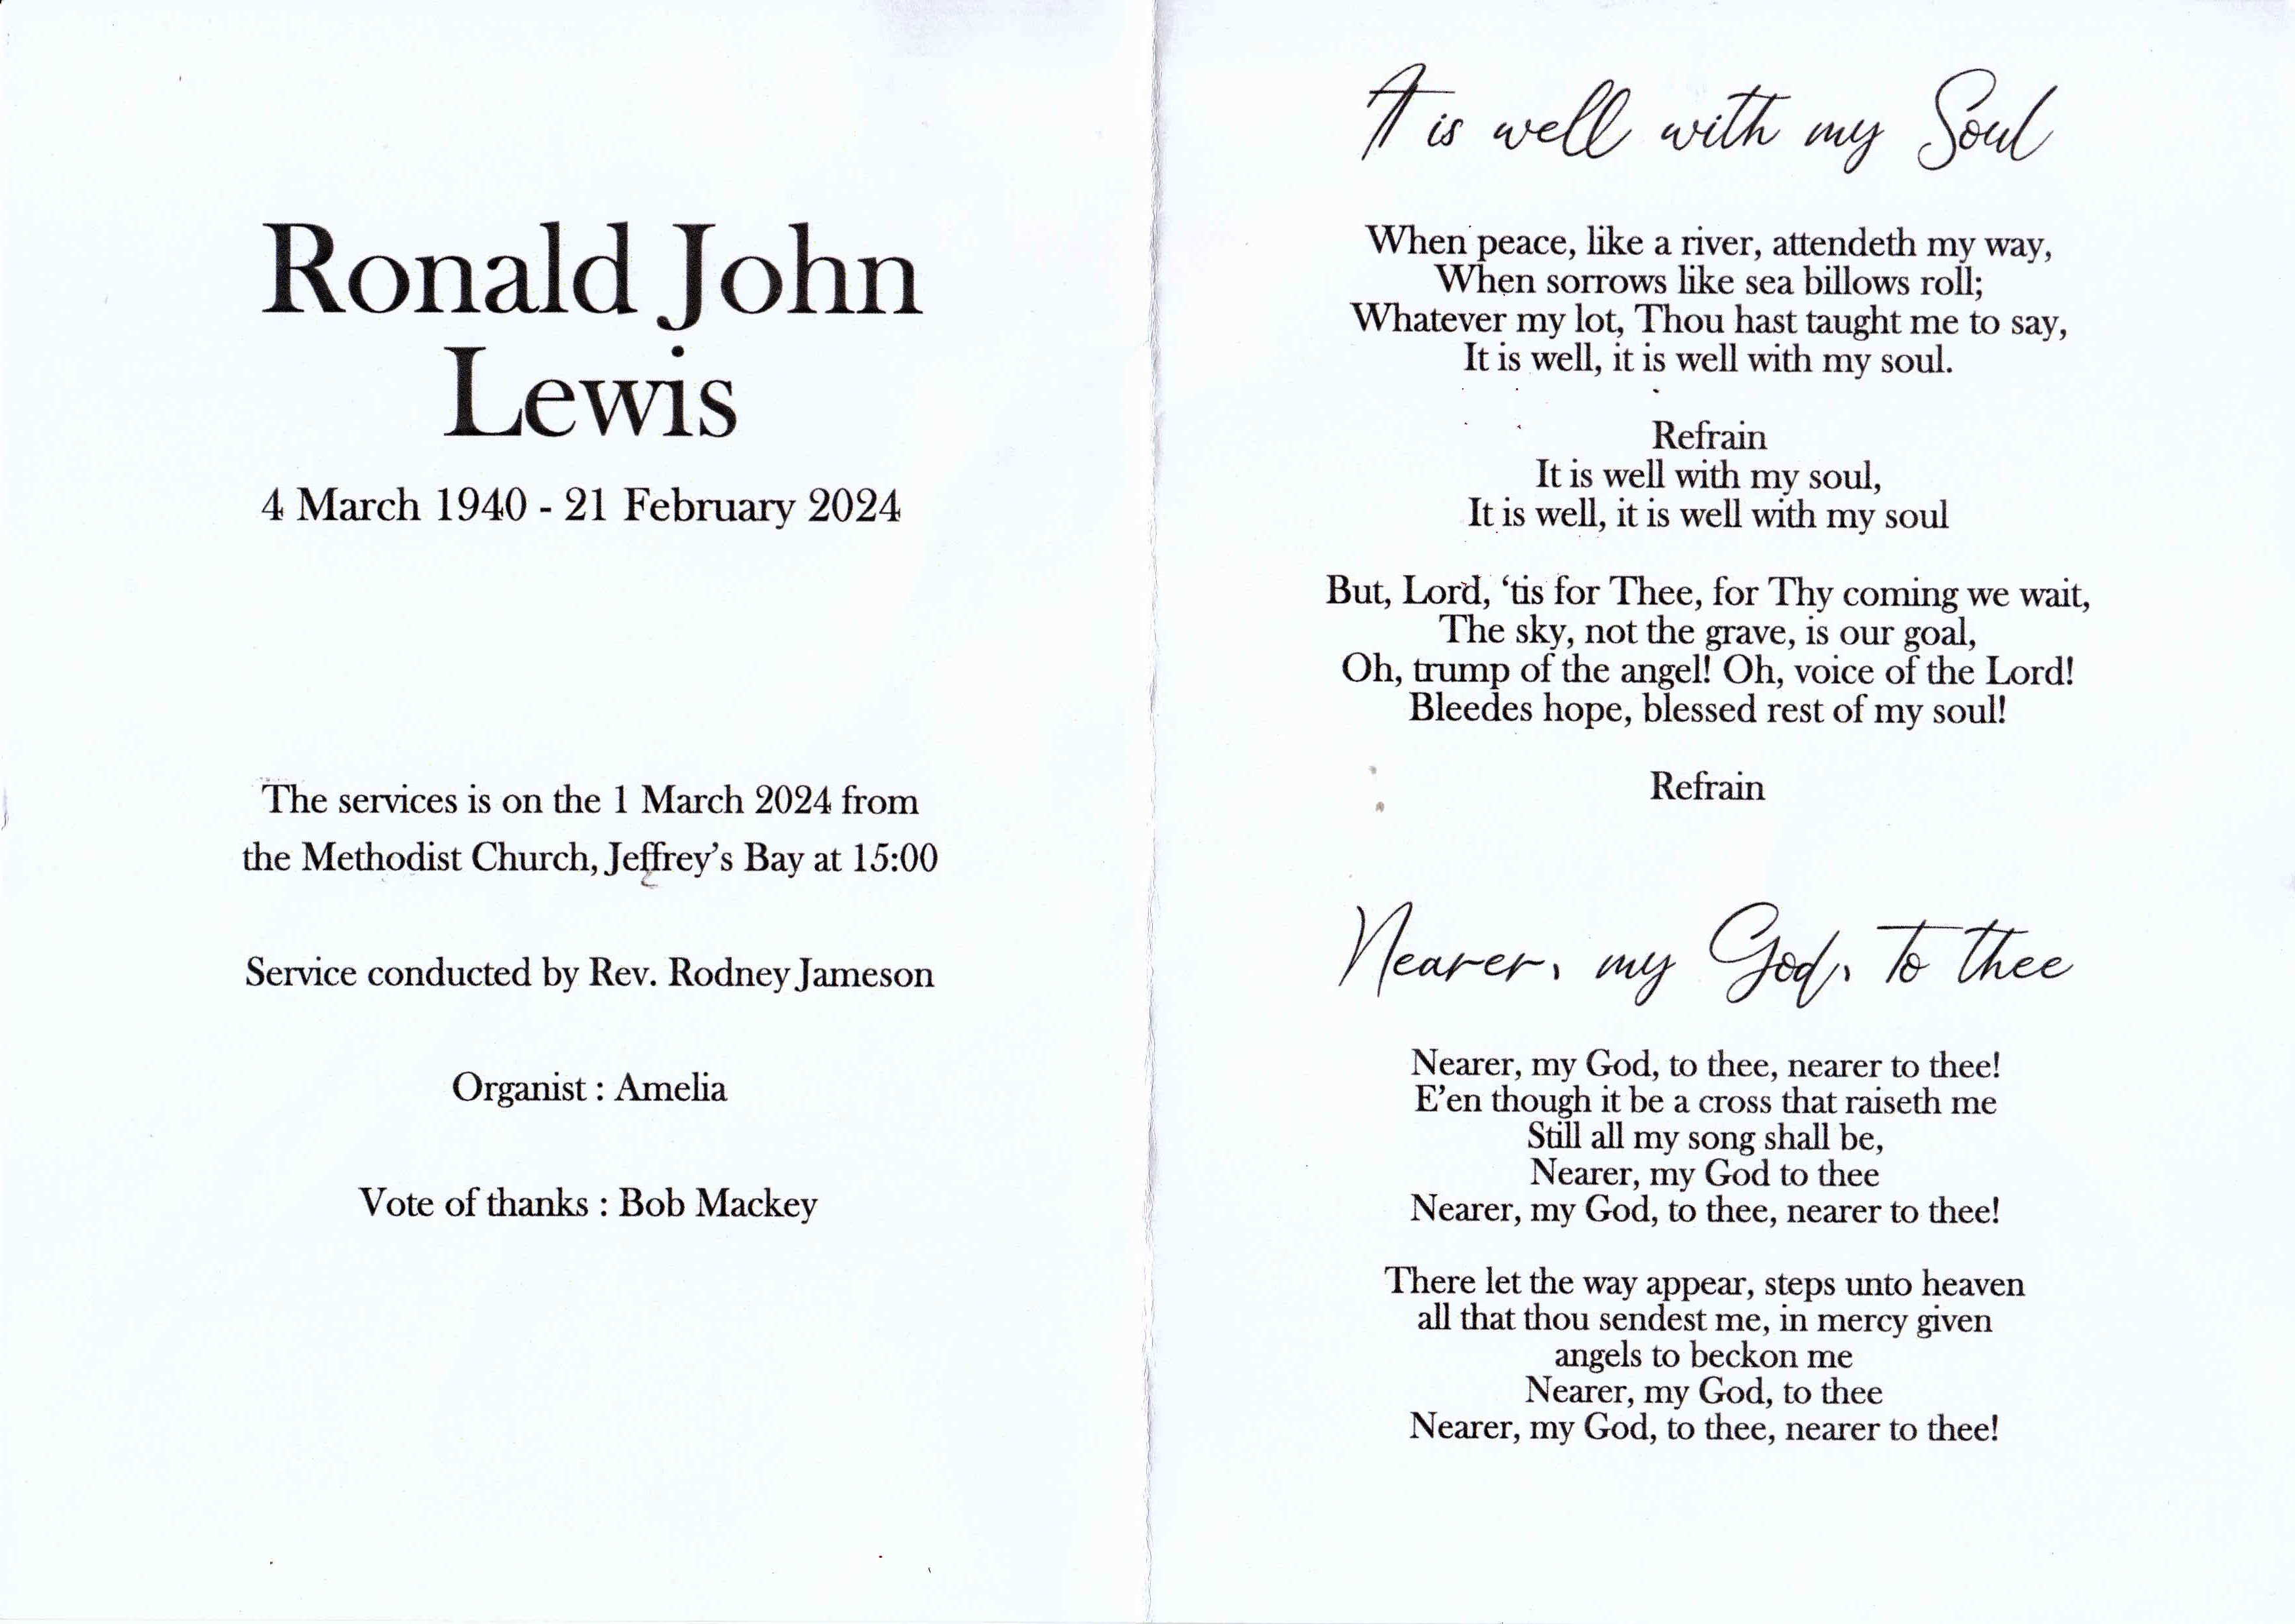 Ronald John
Lewis
4 March 1940 - 21 February 2024
The services is on the 1 March 2024 from
the Methodist Church, Jeffrey's Bay at 15:00
Service conducted by Rev. Rodney Jameson
Organist : Amelia
Vote of thanks : Bob Mackey
It is well with my Soul
When peace, like a river, attendeth my way,
When sorrows like sea billows roll;
Whatever my lot, Thou hast taught me to say,
It is well, it is well with my soul.
Refrain
It is well with my soul,
It is well, it is well with my soul
But, Lord, ‘tis for Thee, for Thy coming we wait,
The sky, not the grave, is our goal,
Oh, trump of the angel! Oh, voice of the Lord!
Bleedes hope, blessed rest of my soul!
Refrain
Nearer, my God, to thee
Nearer, my God, to thee, nearer to thee!
E’en though it be a cross that raiseth me
Still all my song shall be,
Nearer, my God to thee
Nearer, my God, to thee, nearer to thee!
There let the way appear, steps unto heaven
all that thou sendest me, in mercy given
angels to beckon me
Nearer, my God, to thee
Nearer, my God, to thee, nearer to thee!